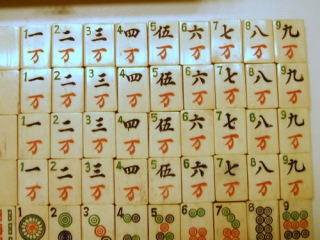 1一 2二 3三 4四 5伍 6六 7七 8八 9九
万 万 万 万 万 万 万 万 万
1一 2二 3三 4四 5伍 6六 7七 8八 9九
万 万 万 万 万 万 万 万 万
1一 2二 3三 4四 5伍 6六 7七 8八 9九
万 万 万 万 万 万 万 万 万
1一 2二 3三 4四 5伍 6六 7七 8八 9九
万 万 万 万 万 万 万 万 万
1 2 3 4 5 6 7 8 9